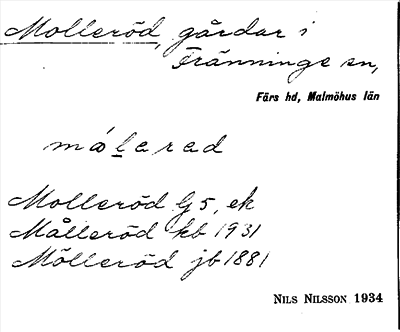 Molleröd, gårdar i
Fränninge sn,
Färs hd, Malmöhus län
målarad
Molleröd G 5, ek
Målleröd kb 1931
Mölleröd jb 1881
NILS NILSSON 1934